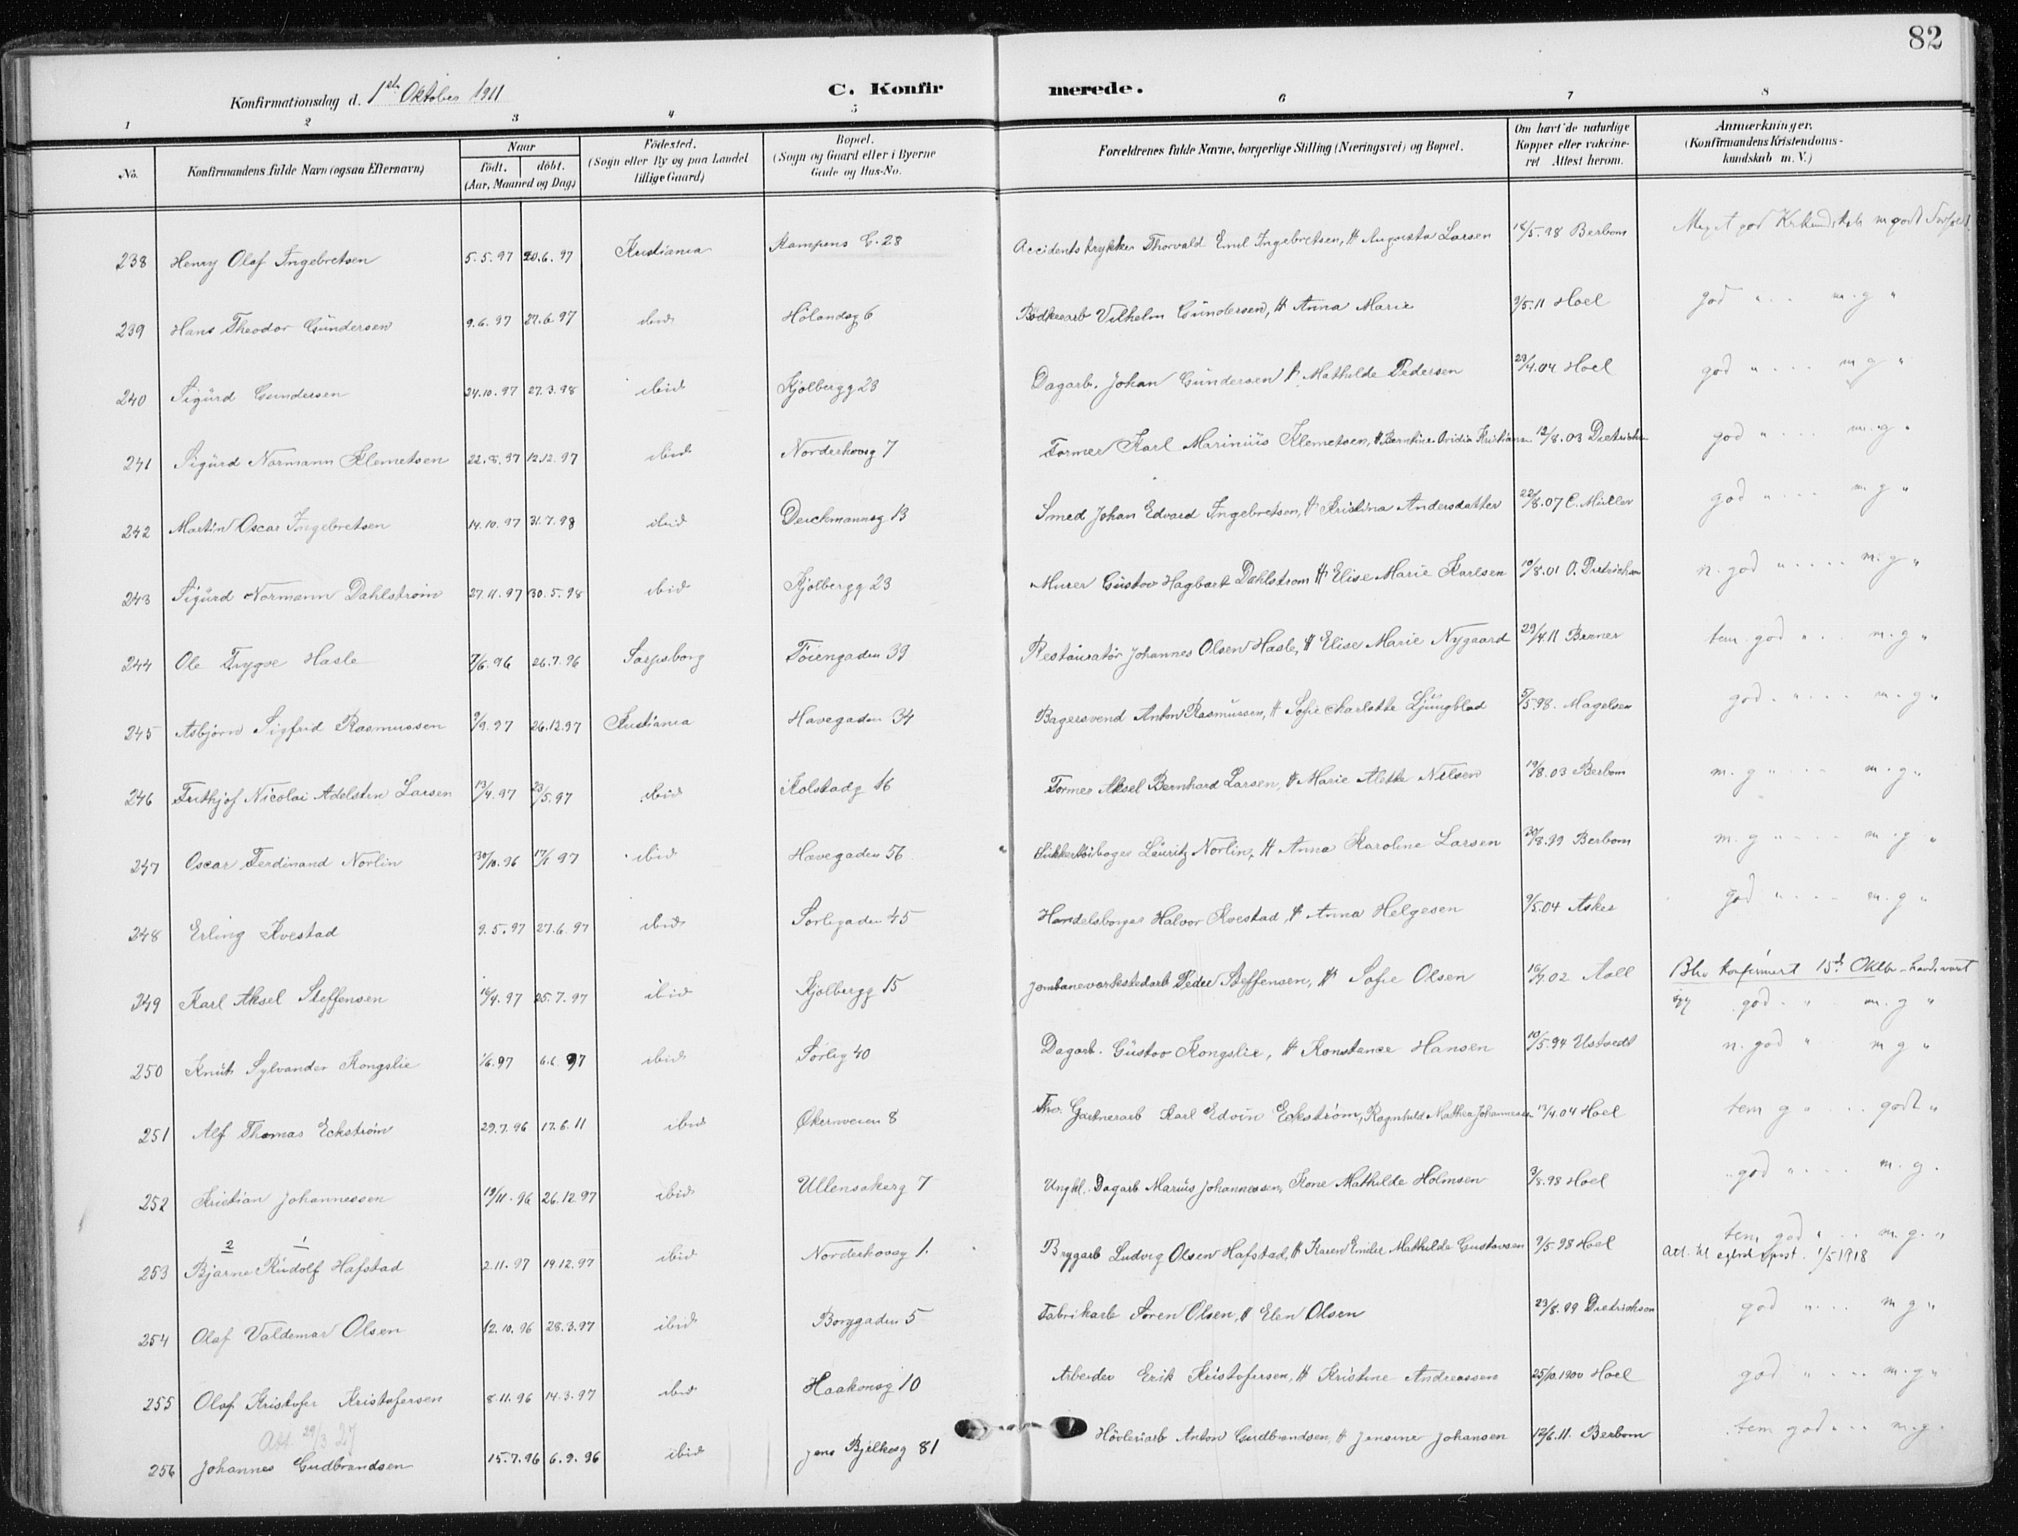 82
Konfirmationsdag d. 1ste Oktober 1911
C. Konfirmerede.
1 2 3 4 5 6 7 8
No. Konfirmandens fulde Navn (ogsaa Efternavn) Naar födt. döbt. (Aar, Maaned og Dag) Födested. (Sogn eller By og paa Landet tillige Gaard) Bopæl. (Sogn og Gaard eller i Byerne Gade og Hus-No. Forældrenes fulde Navne, borgerlige Stilling (Næringsvei) og Bopæl. Om havt de naturlige Kopper eller vakcineret Attest herom. Anmærkninger. (Konfirmandens Kristendomskundskab m. V.)
238 Henry Olaf Ingebretsen 5.5.97 20.6.97 Kristiania Kampens G. 28 Accidentstrykker Thorvald Emil Ingebretsen, H Augusta Larsen 12/5.98 Berbom Meget god Kr.kundskab m godt Forhold
239 Hans Theodor Gundersen 9.6.97 27.6.97 ibid Hölandsg 6 Bödkerarb Vilhelm Gundersen, H Anna Marie 9/5.11 Hoel god " .. m.g "
240 Sigurd Gundersen 24.10.97 27.3.98 ibid Kjölbergg 23 Dagarb. Johan Gundersen H Mathilde Pedersen 23/4.04 Hoel god " ... m g "
241 Sigurd Normann Klemetsen 22.8.97 12.12.97 ibid Norderhovsg 7 Former Karl Marinius Klemetsen, H Berntine Ovidia Kristians 12/8.03 Dietrichs god " ... m.g "
242 Martin Oscar Ingebretsen 14.10.97 31.7.98 ibid Deichmannsg 13 Smed Johan Edvard Ingebretsen, H Kristina Andersdatter 22/8.07 C. Müller god " ... m g "
243 Sigurd Normann Dahlstrøm 27.11.97 30.5.98 ibid Kjölbergg 23 Murer Gustav Hagbart Dahlstrom H Elise Marie Karlsen 19/8.01 O. Dietrichson n. god " .... m.g "
244 Ole Trygve Hasle 7/6.96 26.7.96 Sarpsborg Töiengaden 39 Restauratør Johannes Olsen Hasle, H Elise Marie Nygaard 29/4.11 Berner tem. god " .. m.g "
245 Asbjørn Sigfrid Rasmussen 9/9.97 26.12.97 Kristiania Havegaden 34 Bagersvend Anton Rasmussen, H Sofie Charlotte Ljungblad 5/5.98. Magelsen god. " ... m.g "
246 Frithjof Nicolai Adelsten Larsen 13/4.97 23/5.97 ibid Kolstadg 16 Former Aksel Bernhard Larsen, H Marie Alette Nilsen 19/8.03 Berbom m.g " ... m.g "
247 Oscar Ferdinand Norlin 30/10.96 17/1 97 ibid Havegaden 56 Lauritz Norlin, H Anna Karoline Larsen 30/8.99 Berbom m.g " ... m.g "
248 Erling Kvestad 9.5.97 27.6.97 ibid Sorligaden 45 Handelsborger Halvor Kvestad, H Anna Helgesen 9/5.04 Asker god " ... m.g "
249 Karl Aksel Steffensen 16/4.97 25.7.97 ibid Kjölbergg 15 Jernbaneverkstedarb Peder Steffensen, H Sofie Olsen 16/7.02 Aall Blev konfirmert 15de Oktbr - havde været
syg god. " . m.g "
250 Knut Sylvander Kongslie 1/6.97 6.6.97 ibid Sorlig 40 Dagarb. Gustav Kongslie, H Konstance Hansen 10/5.94 Ustvedt n. god " m g "
251 Alf Thomas Eckstrøm 29.7.96 17.6.11 ibid Økernveien 8 Fhv. Gartnerarb Karl Edvin Eckstrøm, Ragnhild Mathea Johannesen 13/4.04 Hoel tem g " ... godt "
252 Kristian Johannessen 19/11.96 26.12.97 ibid Ullensakerg 7 Ungkl. Dagarb Marius Johannessen, Kone Mathilde Holmsen 3/8.98 Hoel god " ... m.g.
253 2 1 Bjarne Rudolf Hafstad 2.11.97 19.12.97 ibid Norderhovsg 1. Brygarb Ludvig Olsen Hafstad, H Karen Emilie Mathilde Gustavsen 9/5.98 Hoel tem god " .. m.g. "
Att. til 1/5 1918
254 Olaf Valdemar Olsen 12.10.96 28.3.97 ibid Borggaden 5 Fabrikarb Soren Olsen, H Elen Olsen 23/8.99 Dietrichson god " ... m g "
255 Olaf Kristofer Kristofersen 8.11.96 14.3.97 ibid Haakonsg 10 Arbeider Erik Kristofersen, H Kristine Andreassen 25/10.1900 Hoel god " ... m.g "
Att. 29/3 27
256 Johannes Gudbrandsen 15.7.96 6.9.96 ibid Jens Bjelkesg 81 Hövleriarb Anton Gudbrandsen, H Jensine Johansen 12/6.11. Berbom tem god " .. m.g.